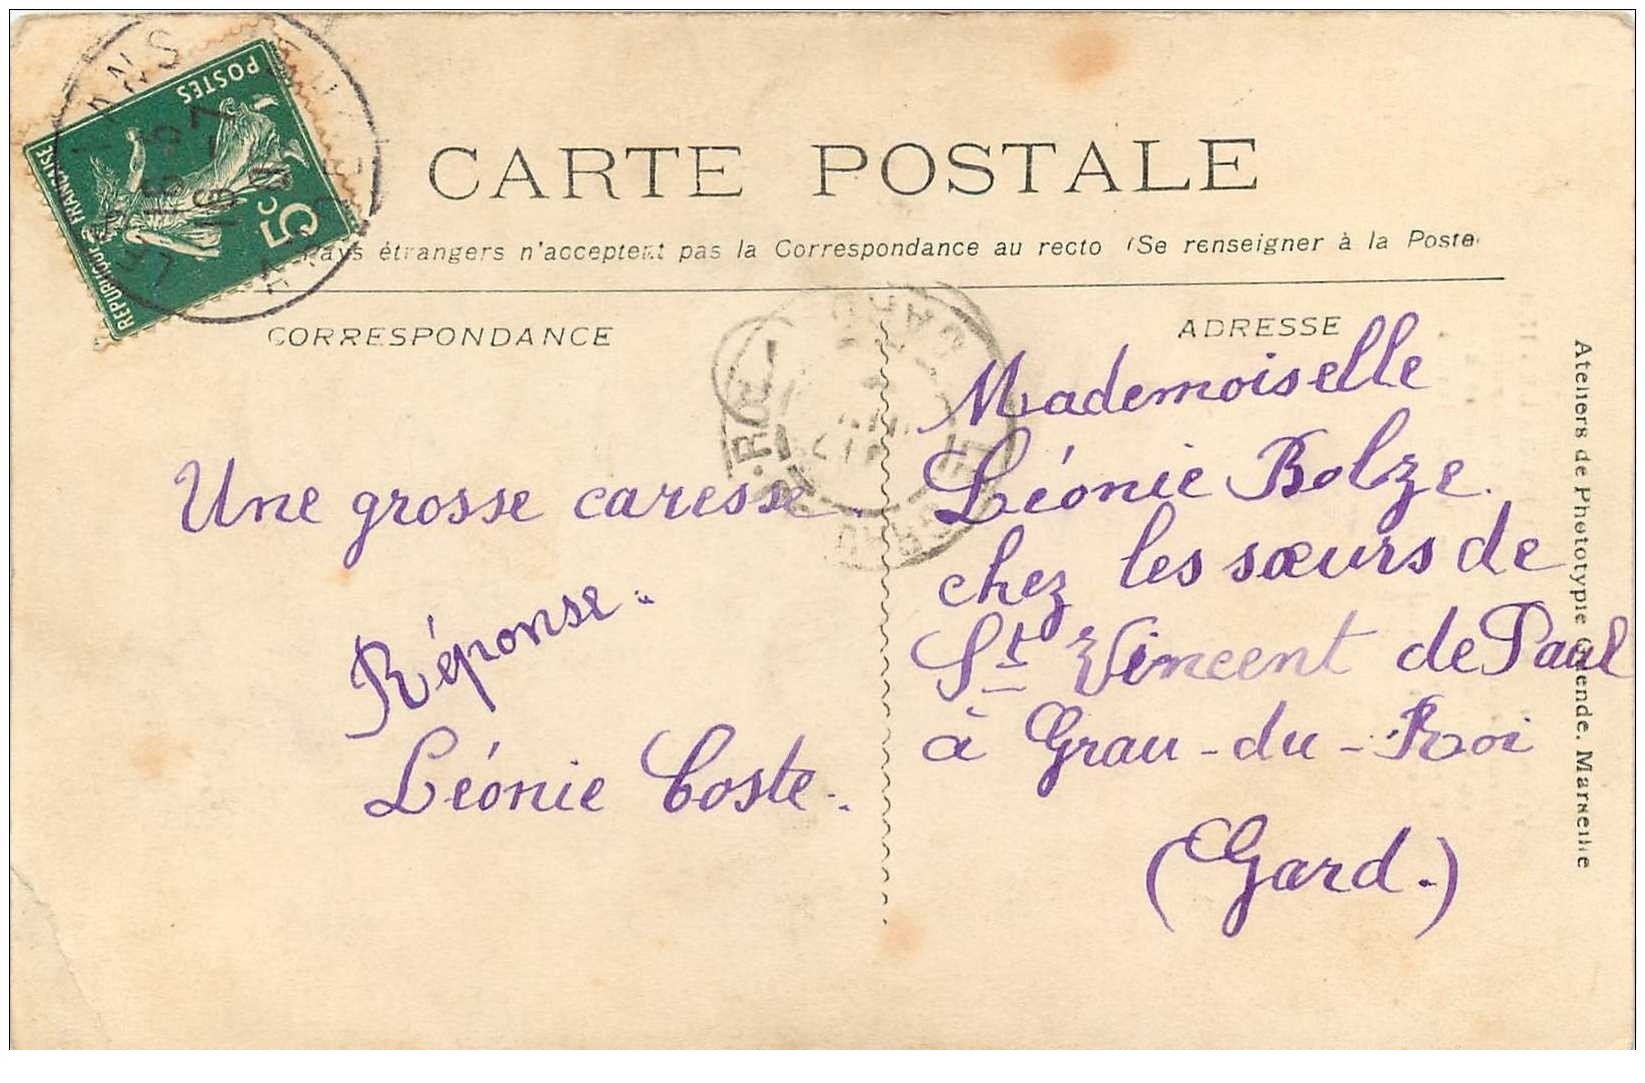 CARTE POSTALE
pays étrangers n'acceptent pas la Correspondance au recto (Se renseigner à la Poste
CORRESPONDANCE
ADRESSE
POSTES
5c
REPUBLIQUE FRANÇAISE
Une grosse caresse.
Réponse.
Léonie Coste.
Mademoiselle
Léonie Bolze.
chez les sœurs de
St Vincent de Paul
à Grau-du-Roi
(Gard.)
Ateliers de Phototypie Marseille